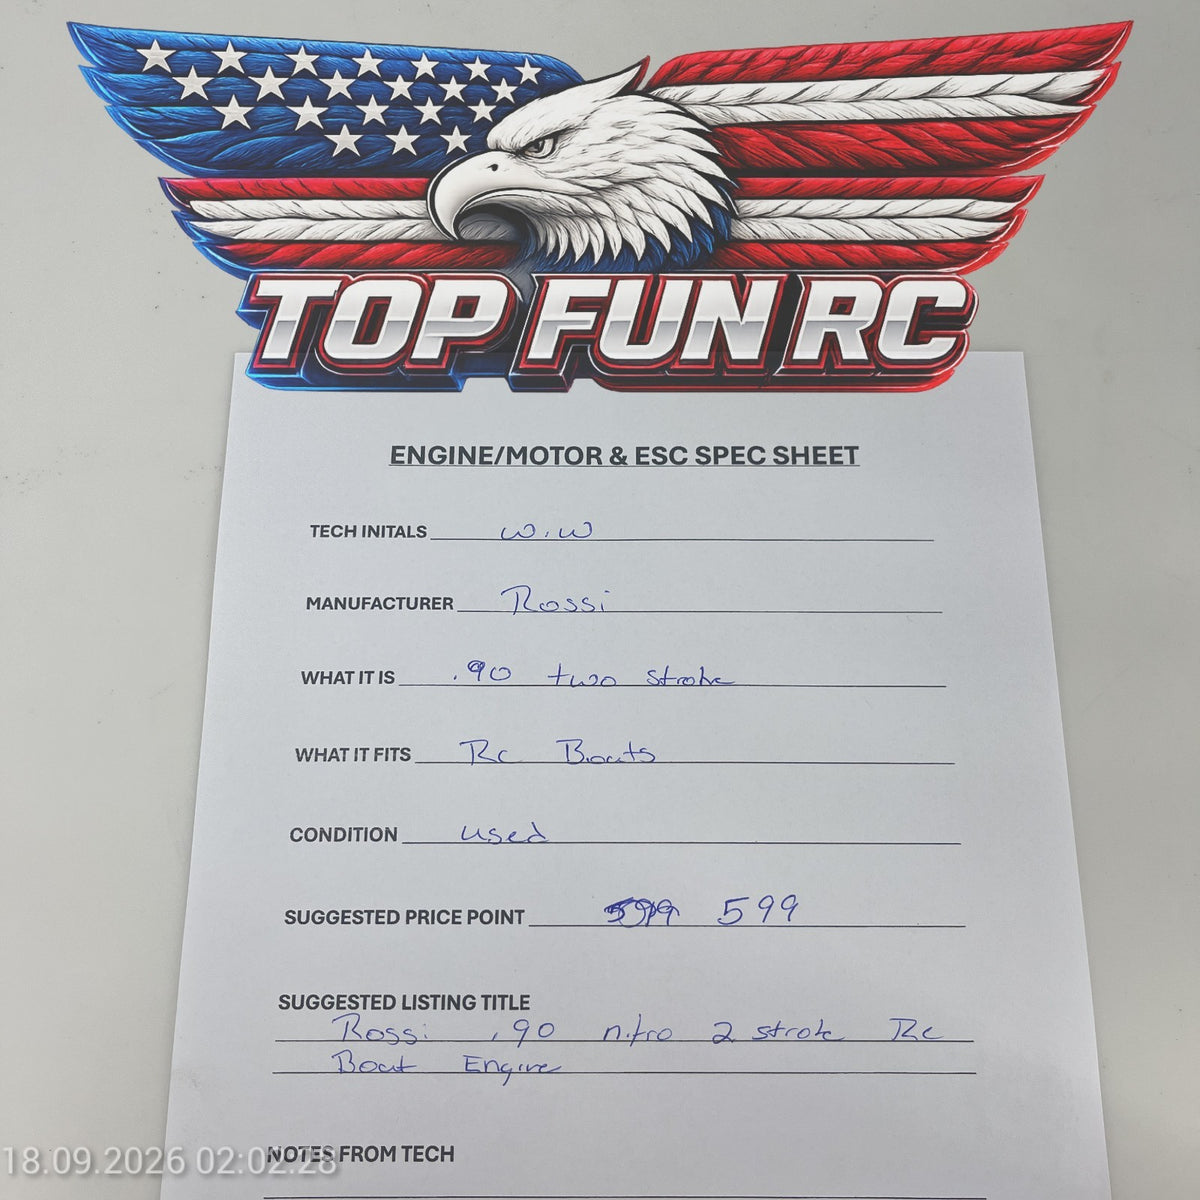 TOP FUN RC
ENGINE/MOTOR & ESC SPEC SHEET
TECH INITALS W.W
MANUFACTURER Rossi
WHAT IT IS .90 two stroke
WHAT IT FITS Rc Boats
CONDITION used
SUGGESTED PRICE POINT 599
SUGGESTED LISTING TITLE
Rossi .90 nitro 2 stroke Rc
Boat Engine
NOTES FROM TECH
18.09.2026 02:02:28